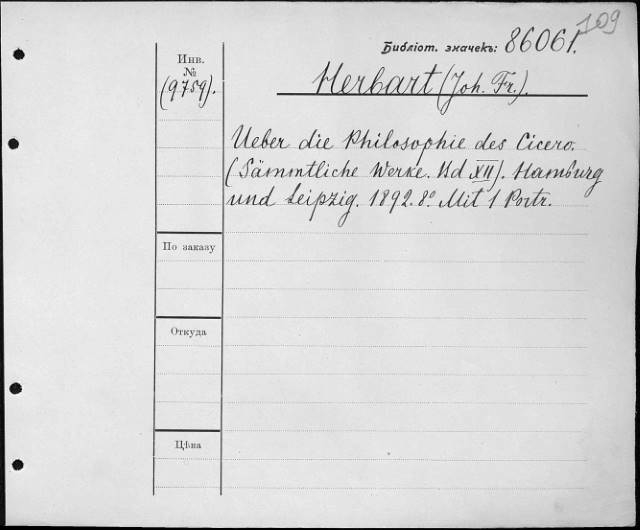 109
Библіот. значекъ: 86061.
Инв.
№
(9759).
Herbart (Joh. Fr.).
Ueber die Philosophie des Cicero.
(Sämmtliche Werke. Bd XII). Hamburg
und Leipzig. 1892. 8° Mit 1 Portr.
По заказу
Откуда
Цѣна